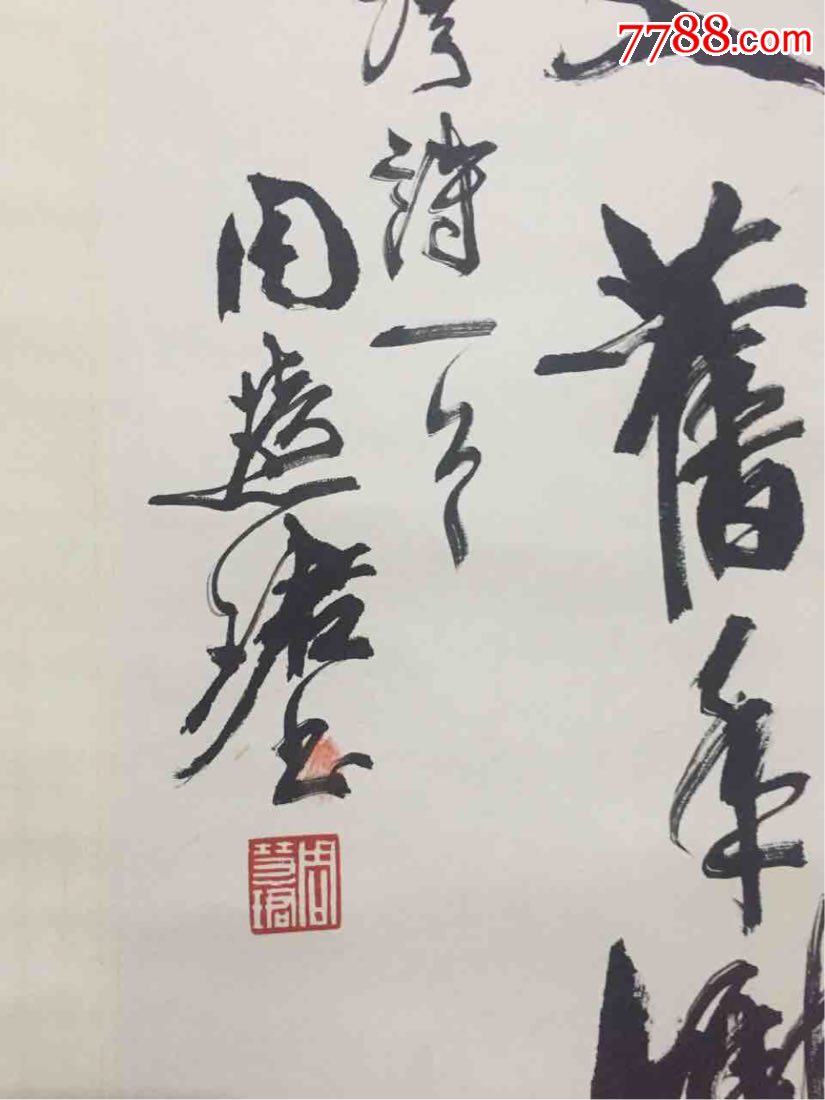 7788.com
舊年
詩一首
周慧珺书
周慧珺